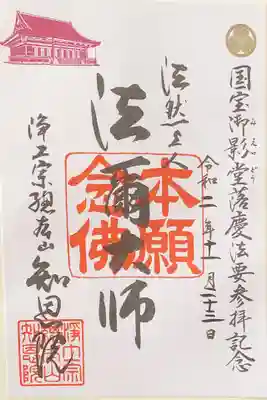 国宝御影堂落慶法要参拝記念
みえいどう
令和二年十一月二十三日
法然上人
法爾大師
本願
念佛
浄土宗總本山
知恩院